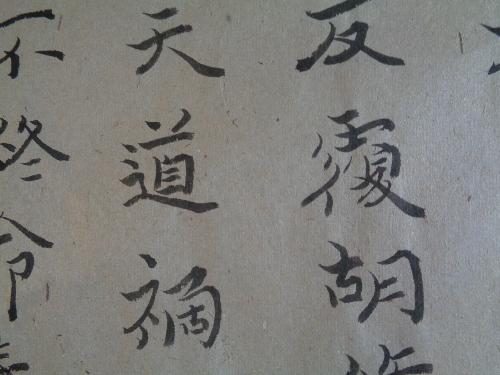 反覆胡
天道禍
不終命